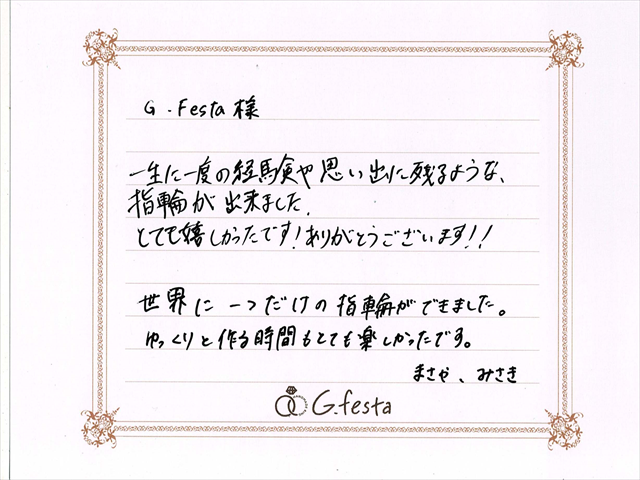 G.Festa様
一生に一度の経験や思い出に残るような、
指輪が出来ました.
とても嬉しかったです!ありがとうございます!!
世界に一つだけの指輪ができました。
ゆっくりと作る時間もとても楽しかったです。
まさや、みさき
G.festa